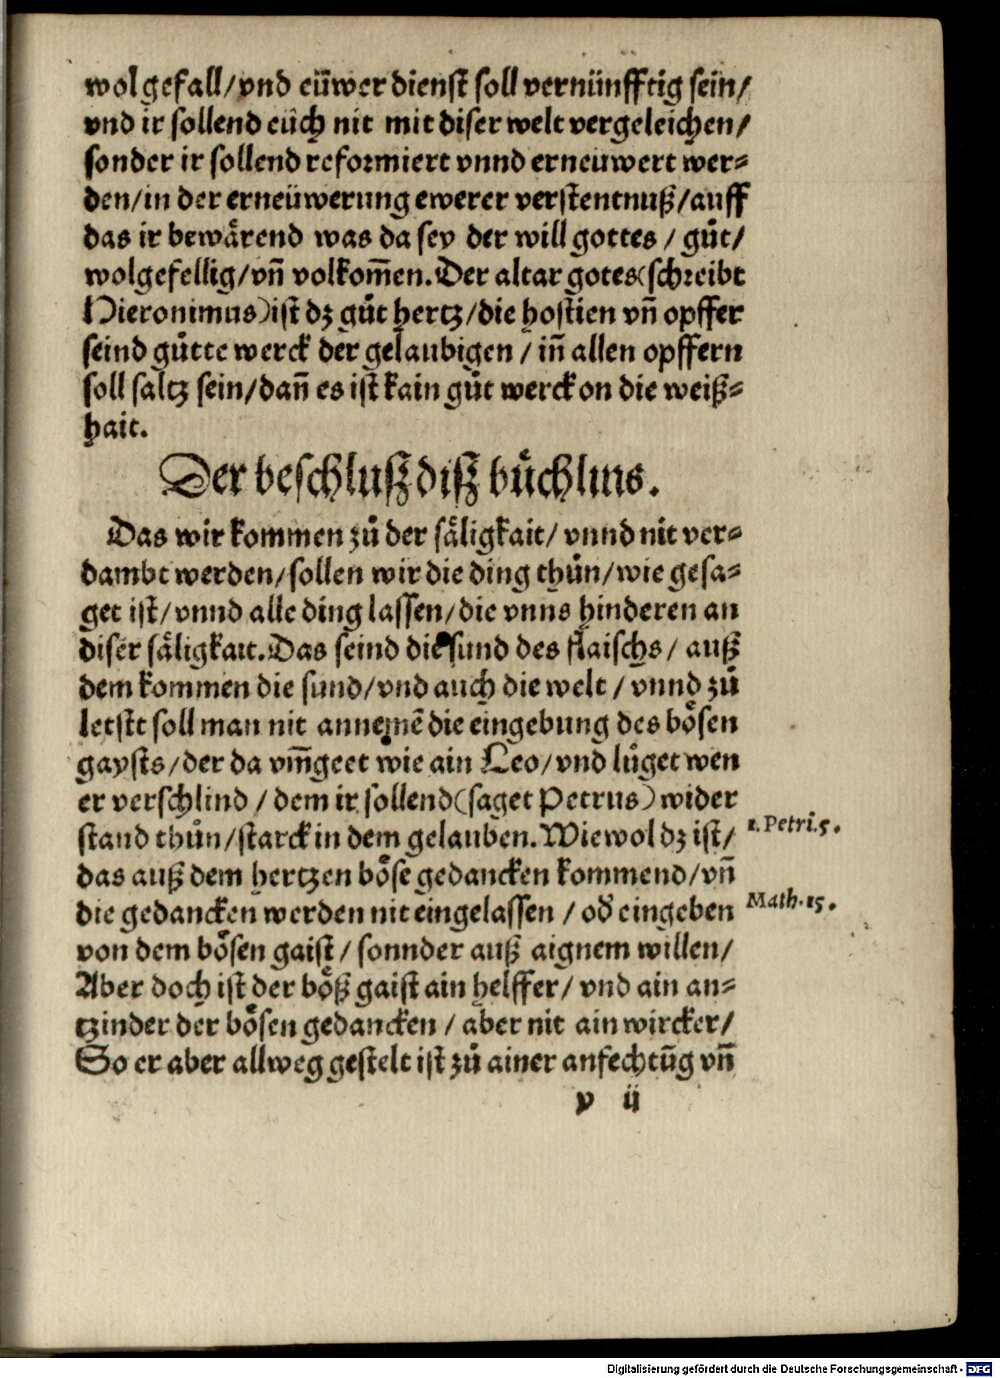 wolgefall/vnd eüwer dienst soll vernünfftig sein/
vnd ir sollend eüch nit mit diser welt vergeleichen/
sonder ir sollend reformiert vnnd erneüwert wer⸗
den/in der erneüwerung ewerer verstentnuß/auff
das ir bewaͤrend was da sey der will gottes / guͦt/
wolgefellig/vñ volkom̃en. Der altar gotes(schreibt
Hieronimus)ist dz guͦt hertz/die hostien vñ opffer
seind guͦtte werck der gelaubigen / iñ allen opffern
soll saltz sein/dañ es ist kain guͦt werck on die weiß⸗
hait.
Der beschluß diß buͤchlins.
Das wir kommen zuͦ der saͤligkait/ vnnd nit ver⸗
dambt werden/sollen wir die ding thuͦn/wie gesa⸗
get ist/vnnd alle ding lassen/die vnns hinderen an
diser saͤligkait. Das seind die sund des flaischs/ auß
dem kommen die sund/vnd auch die welt / vnnd zuͦ
letste soll man nit annemẽ die eingebung des boͤsen
gaysts/der da vm̃geet wie ain Leo/vnd luͦget wen
er verschlind / dem ir sollend(saget Petrus)wider
stand thuͦn/starck in dem gelauben. Wiewol dz ist/
1. Petri. 5.
das auß dem hertzen boͤse gedancken kommend/vñ
die gedancken werden nit eingelassen / od̓ eingeben
Math. 15.
von dem boͤsen gaist / sonnder auß aignem willen/
Aber doch ist der boͤß gaist ain helffer/ vnd ain an⸗
tzinder der boͤsen gedancken / aber nit ain wircker/
So er aber allweg gestelt ist zuͦ ainer anfechtũg vñ
y ij
Digitalisierung gefördert durch die Deutsche Forschungsgemeinschaft - DFG